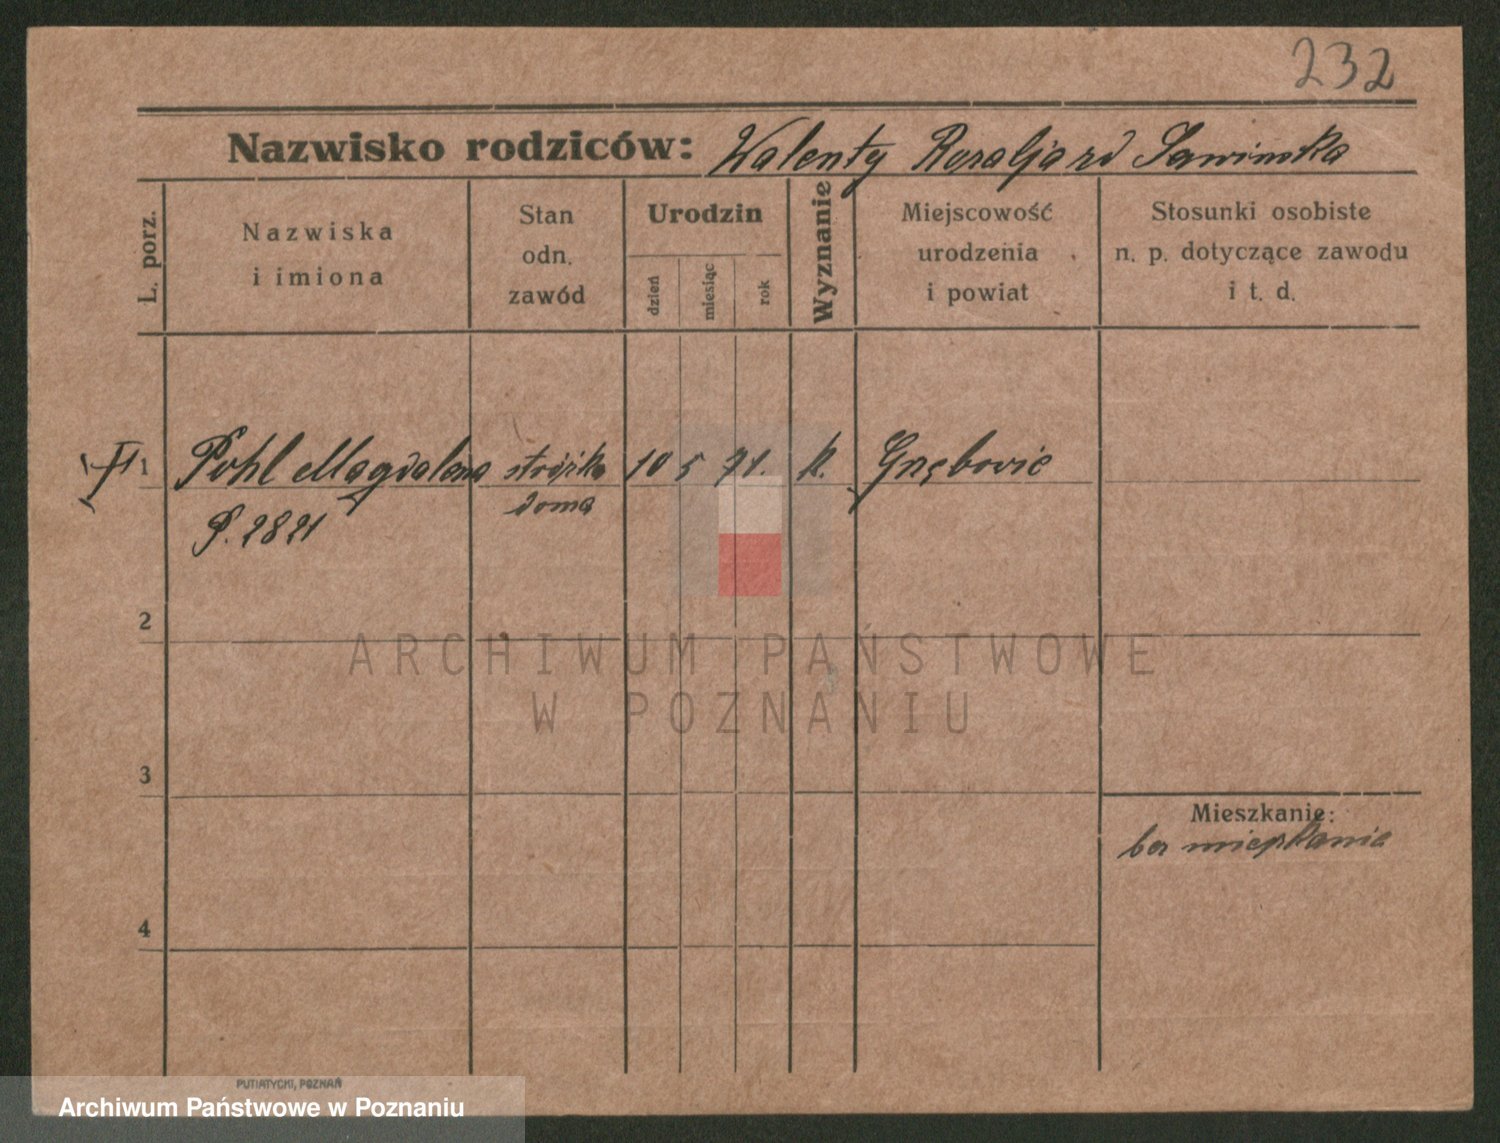 232
Nazwisko rodziców: Walenty Rozalja zd Sawinska
L. porz.
Nazwiska
i imiona
Stan
odn.
zawód
Urodzin
dzień
miesiąc
rok
Wyznanie
Miejscowość
urodzenia
i powiat
Stosunki osobiste
n. p. dotyczące zawodu
i t. d.
1 Pohl Magdalena stróżka 10 5 71. k.
doma
P. 2821
2
ARCHIWUM PAŃSTWOWE
W POZNANIU
3
Mieszkanie:
bez mieszkania
4
PUTIATYCKI, POZNAŃ
Archiwum Państwowe w Poznaniu